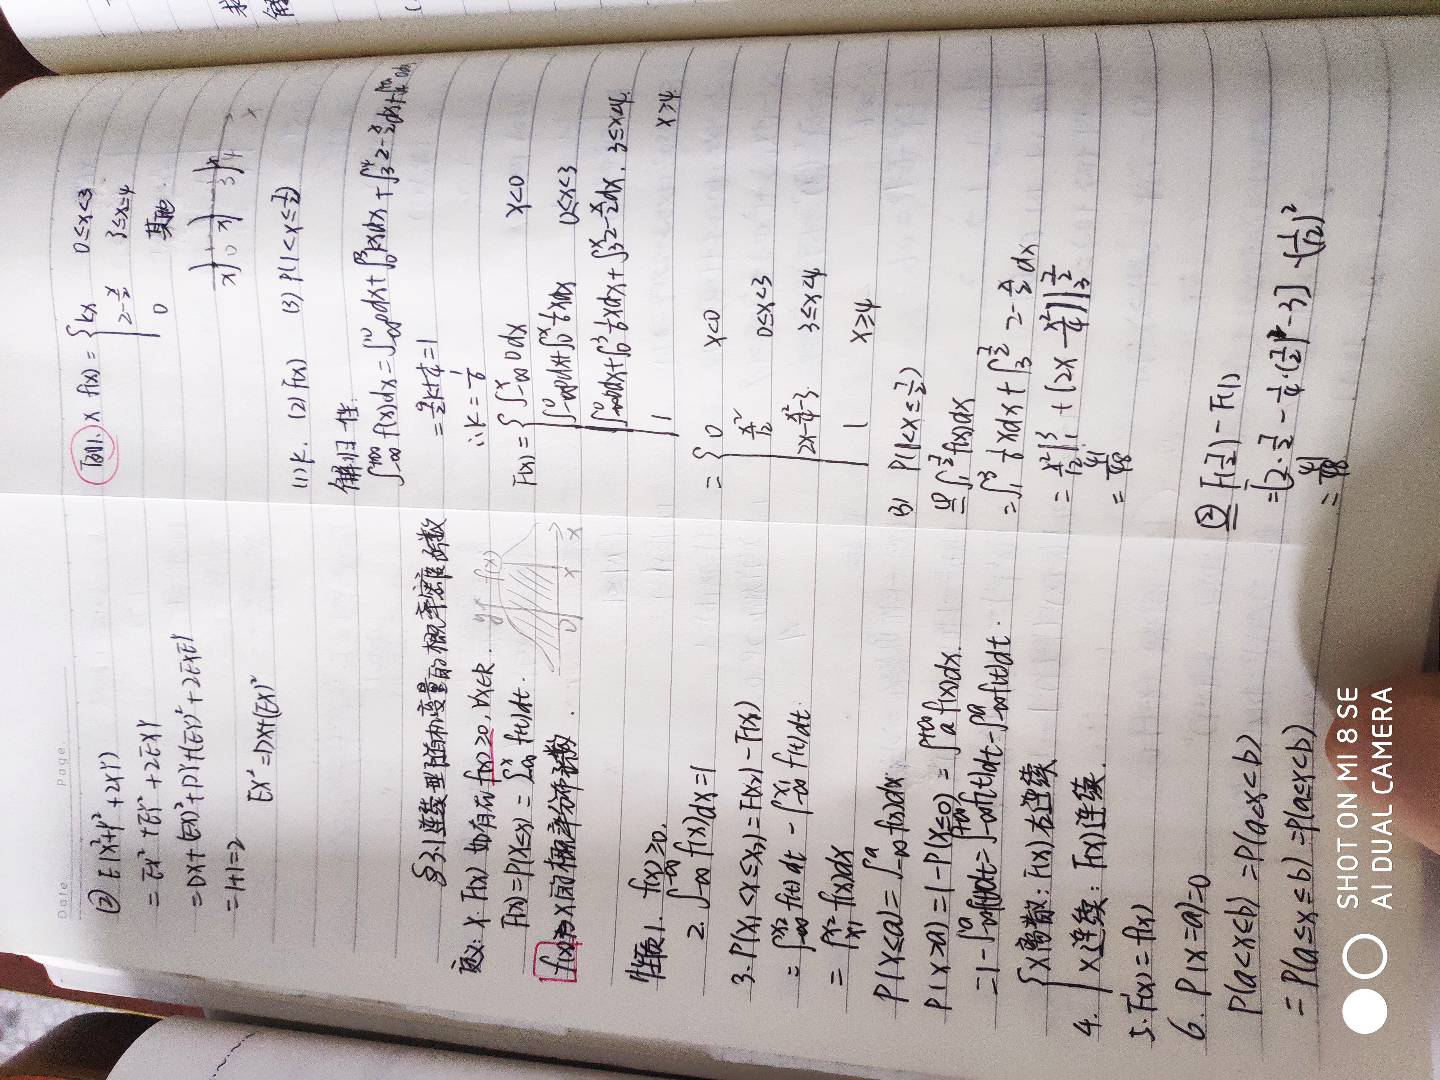 Date. Page.
② E(X²+Y²+2XY)
= EX²+EY²+2EXY
=DX+(EX)²+DY+(EY)²+2EXEY
=1+1=2
EX²=DX+(EX)²
§3.1连续型随机变量的概率密度函数
定义: X F(x) 如有在f(x)≥0, ∀x∈R.
F(x)=P(X≤x)=∫-∞^x f(t)dt.
f(x)为X的概率分布函数.
y f(x)
0 x x
性质1. f(x)≥0.
2. ∫-∞^+∞ f(x)dx=1
3. P(x₁<X≤x₂)=F(x₂)-F(x₁)
= ∫-∞^x₂ f(t)dt - ∫-∞^x₁ f(t)dt.
= ∫x₁^x₂ f(x)dx
P(X≤a)=∫-∞^a f(x)dx.
P(X>a)=1-P(X≤0)=∫a^+∞ f(x)dx.
=1-∫-∞^a f(t)dt=∫-∞^+∞ f(t)dt-∫-∞^a f(t)dt.
4. { X离散: F(x)右连续
X连续: F(x)连续.
5. F'(x)=f(x)
6. P(X=a)=0
P(a<X≤b)=P(a<X<b)
=P(a≤X≤b)=P(a≤X<b)
例1. X f(x)= { kx 0≤x<3
2-x/2 3≤x≤4
0 其他.
x 0 x 3 x 4 x
(1)k. (2)F(x) (3)P(1<X≤7/2)
解归一性.
∫-∞^+∞ f(x)dx=∫-∞^0 0dx+∫0^3 kxdx+∫3^4 2-x/2dx+∫4^+∞ 0dx
=9/2k+1/4=1
∴k=1/6
F(x)= { ∫-∞^x 0dx x<0
∫-∞^0 0dx+∫0^x 1/6xdx 0≤x<3
∫-∞^0 0dx+∫0^3 1/6xdx+∫3^x 2-x/2dx. 3≤x<4.
1 x≥4
= { 0 x<0
x²/12 0≤x<3
2x-x²/4-3 3≤x<4
1 x≥4
(3) P(1<X≤7/2)
①= ∫1^7/2 f(x)dx
=∫1^3 1/6xdx+∫3^7/2 2-x/2 dx
= x²/12|1^3 + (2x-x²/4)|3^7/2
= 41/48
②= F(7/2)-F(1)
=[2·7/2-1/4·(7/2)²-3]-(1/12)²
= 41/48
SHOT ON MI 8 SE
AI DUAL CAMERA